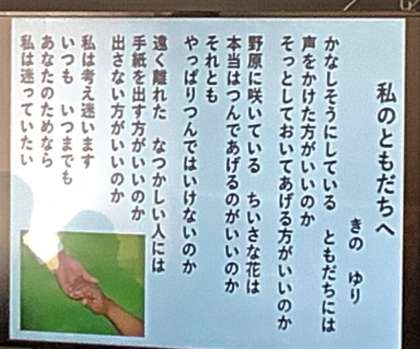 私のともだちへ
きの ゆり
かなしそうにしている ともだちには
声をかけた方がいいのか
そっとしておいてあげる方がいいのか
野原に咲いている ちいさな花は
本当はつんであげるのがいいのか
それとも
やっぱりつんではいけないのか
遠く離れた なつかしい人には
手紙を出す方がいいのか
出さない方がいいのか
私は考え迷います
いつも いつまでも
あなたのためなら
私は迷っていたい